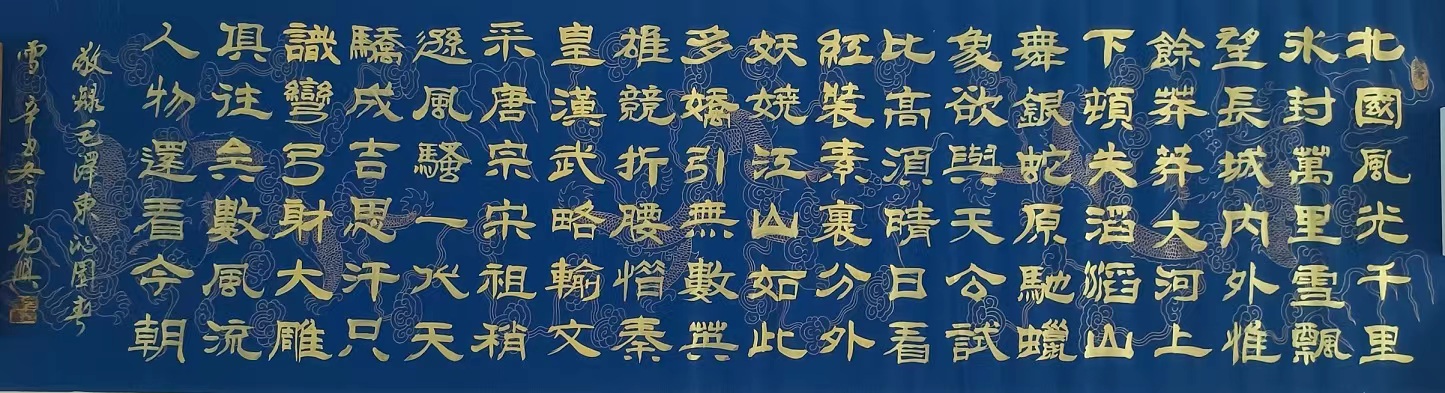 北國風光千里
氷封萬里雪飄
望長城內外惟
餘莽莽大河上
下頓失滔滔山
舞銀蛇原馳蠟
象欲與天公試
比高須晴日看
紅裝素裹分外
妖嬈江山如此
多嬌引無數英
雄競折腰惜秦
皇漢武略輸文
采唐宗宋祖稍
遜風騷一代天
驕成吉思汗只
識彎弓射大雕
俱往矣數風流
人物還看今朝
敬録毛澤東沁園春
雪 辛丑 月